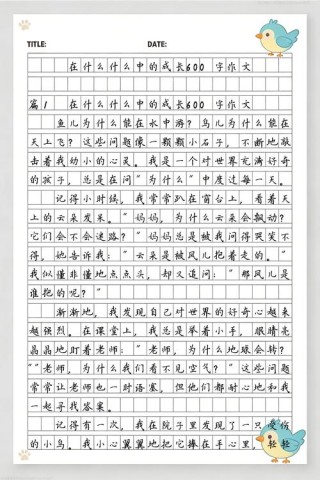 TITLE: DATE:
在什么什么中的成长600 字作文
篇1 在什么什么中的成长600 字作文
鱼儿为什么能在水中游？鸟儿为什么能在
天上飞？这些问题像一颗颗小石子，不断地敲
击着我幼小的心灵。我是一个对世界充满好奇
的孩子，总是在问“为什么”中度过每一天。
记得小时候，我常常趴在窗台上，看着天
上的云朵发呆。“妈妈，为什么云朵会飘动？
它们会不会迷路？”妈妈总是被我问得哭笑不
得，她告诉我：“云朵是被风儿抱着走的。”
我似懂非懂地点点头，却又追问：“那风儿是
谁抱的呢？”
渐渐地，我发现自己对世界的好奇心越来
越强烈。在课堂上，我总是举着小手，眼睛亮
晶晶地盯着老师：“老师，为什么地球会转？
”“老师，为什么我们看不见空气？”这些问题
常常让老师也一时语塞，但他们都耐心地和我
一起寻找答案。
记得有一次，我在院子里发现了一只受伤
的小鸟。我小心翼翼地把它捧在手心里，轻轻